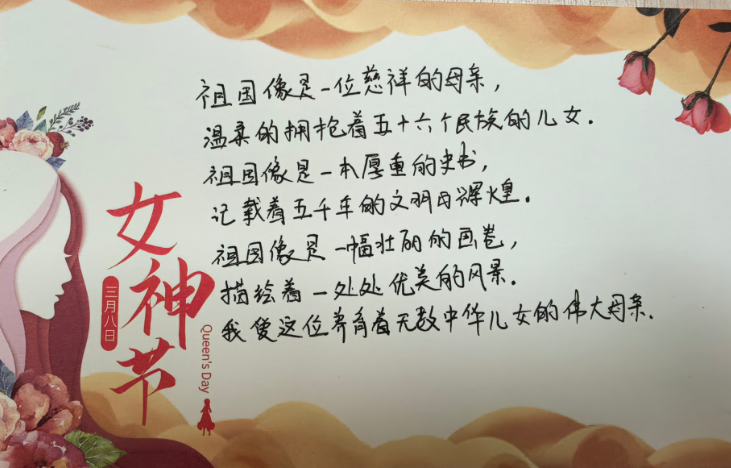 祖国像是一位慈祥的母亲，
温柔的拥抱着五十六个民族的儿女．
祖国像是一本厚重的史书，
记载着五千年的文明与辉煌。
祖国像是一幅壮丽的画卷，
描绘着一处处优美的风景．
我爱这位养育着无数中华儿女的伟大母亲．
女神节
三月八日
Queen's Day